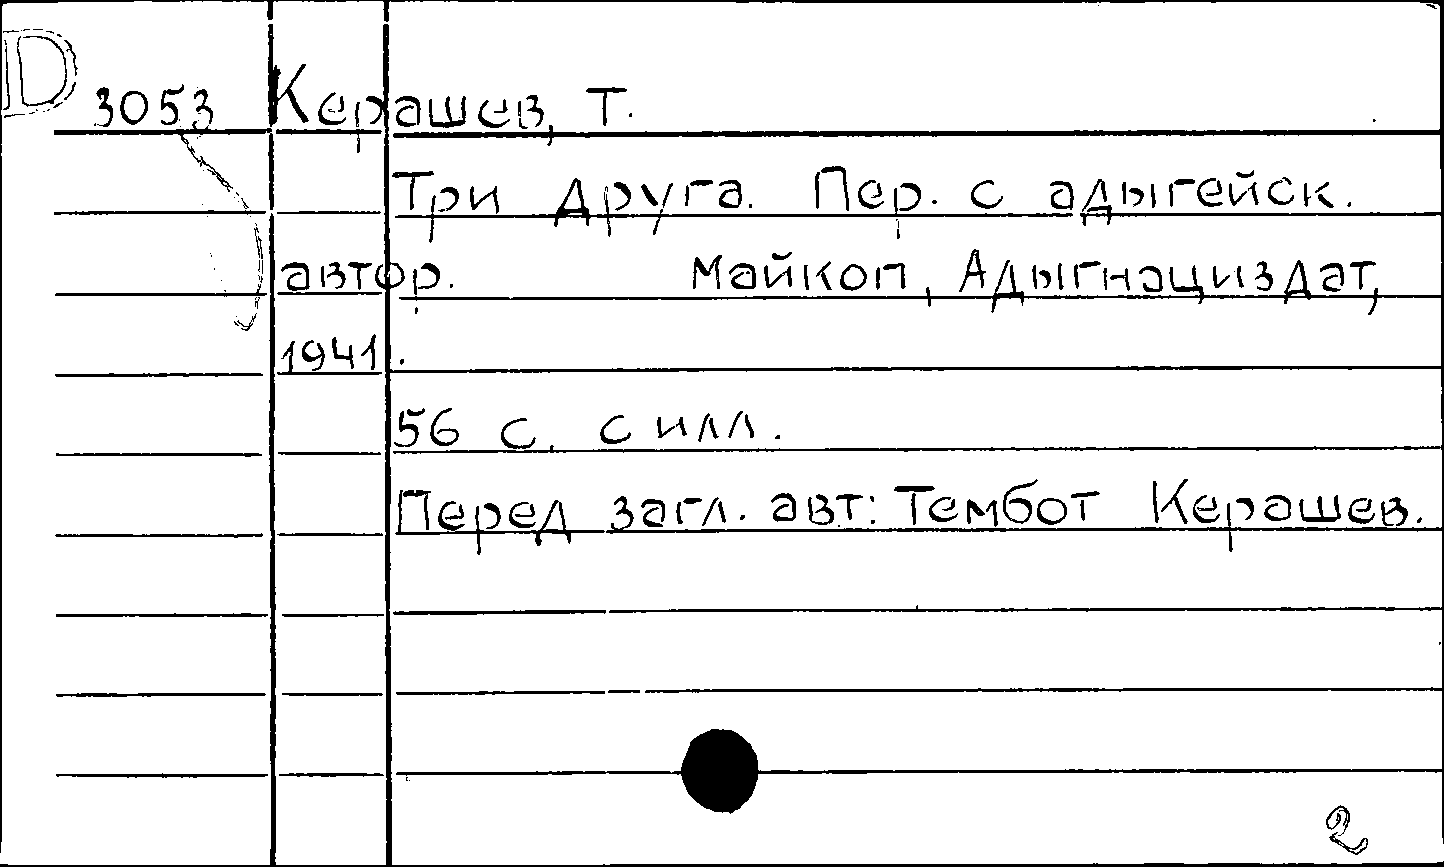 D 3053 Керашев, Т.
Три друга. Пер. с адыгейск.
автор. Майкоп, Адыгнациздат,
1941.
56 с. с илл.
Перед загл. авт: Тембот Керашев.
2